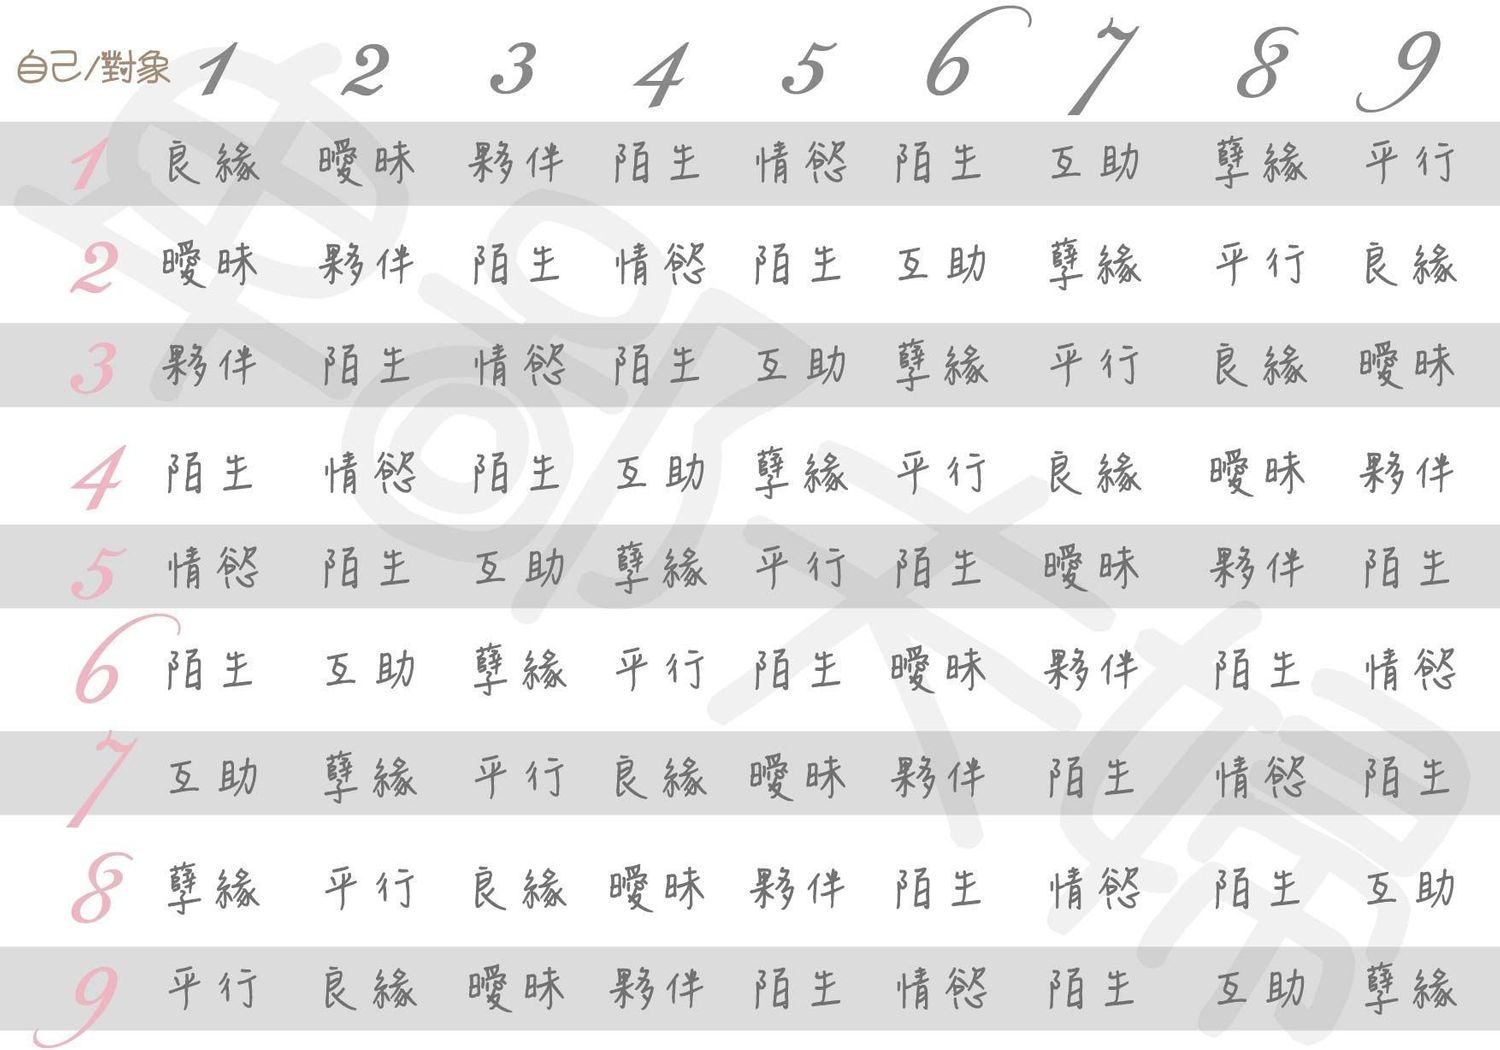 自己/對象 1 2 3 4 5 6 7 8 9
1 良緣 曖昧 夥伴 陌生 情慾 陌生 互助 孽緣 平行
2 曖昧 夥伴 陌生 情慾 陌生 互助 孽緣 平行 良緣
3 夥伴 陌生 情慾 陌生 互助 孽緣 平行 良緣 曖昧
4 陌生 情慾 陌生 互助 孽緣 平行 良緣 曖昧 夥伴
5 情慾 陌生 互助 孽緣 平行 陌生 曖昧 夥伴 陌生
6 陌生 互助 孽緣 平行 陌生 曖昧 夥伴 陌生 情慾
7 互助 孽緣 平行 良緣 曖昧 夥伴 陌生 情慾 陌生
8 孽緣 平行 良緣 曖昧 夥伴 陌生 情慾 陌生 互助
9 平行 良緣 曖昧 夥伴 陌生 情慾 陌生 互助 孽緣